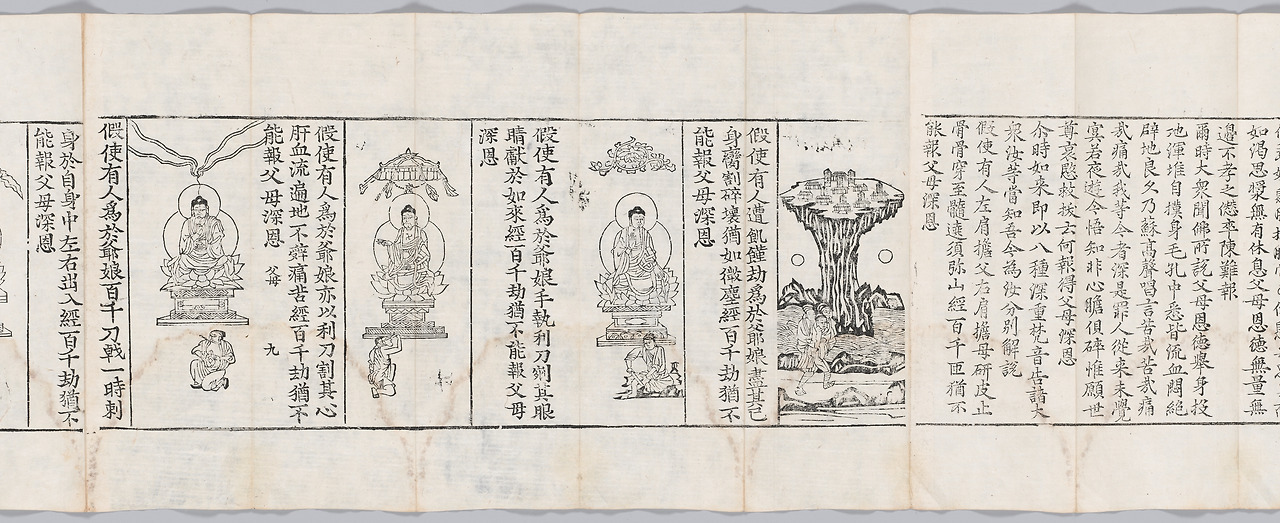 如渴思漿無有休息父母恩德無量無
邊不孝之愆卒陳難報
爾時大衆聞佛所說父母恩德舉身投
地渾堆自撲身毛孔中悉皆流血悶絶
躃地良久乃蘇高聲唱言苦哉苦哉痛
哉痛哉我等今者深是罪人從来未覺
冥若夜遊今悟知非心膽俱碎惟願世
尊哀愍救拔云何報得父母深恩
尒時如来即以八種深重梵音告諸大
衆汝等當知吾今為汝分別解說
假使有人左肩擔父右肩擔母研皮止
骨骨穿至髓遶須弥山經百千匝猶不
能報父母深恩
假使有人遭飢饉劫爲於爺娘盡其己
身臠割碎壞猶如微塵經百千劫猶不
能報父母深恩
假使有人爲於爺娘手執利刀剜其眼
睛獻於如來經百千劫猶不能報父母
深恩
假使有人爲於爺娘亦以利刀割其心
肝血流遍地不辭痛苦經百千劫猶不
能報父母深恩 父母 九
假使有人爲於爺娘百千刀戟一時刺
身於自身中左右出入經百千劫猶不
能報父母深恩